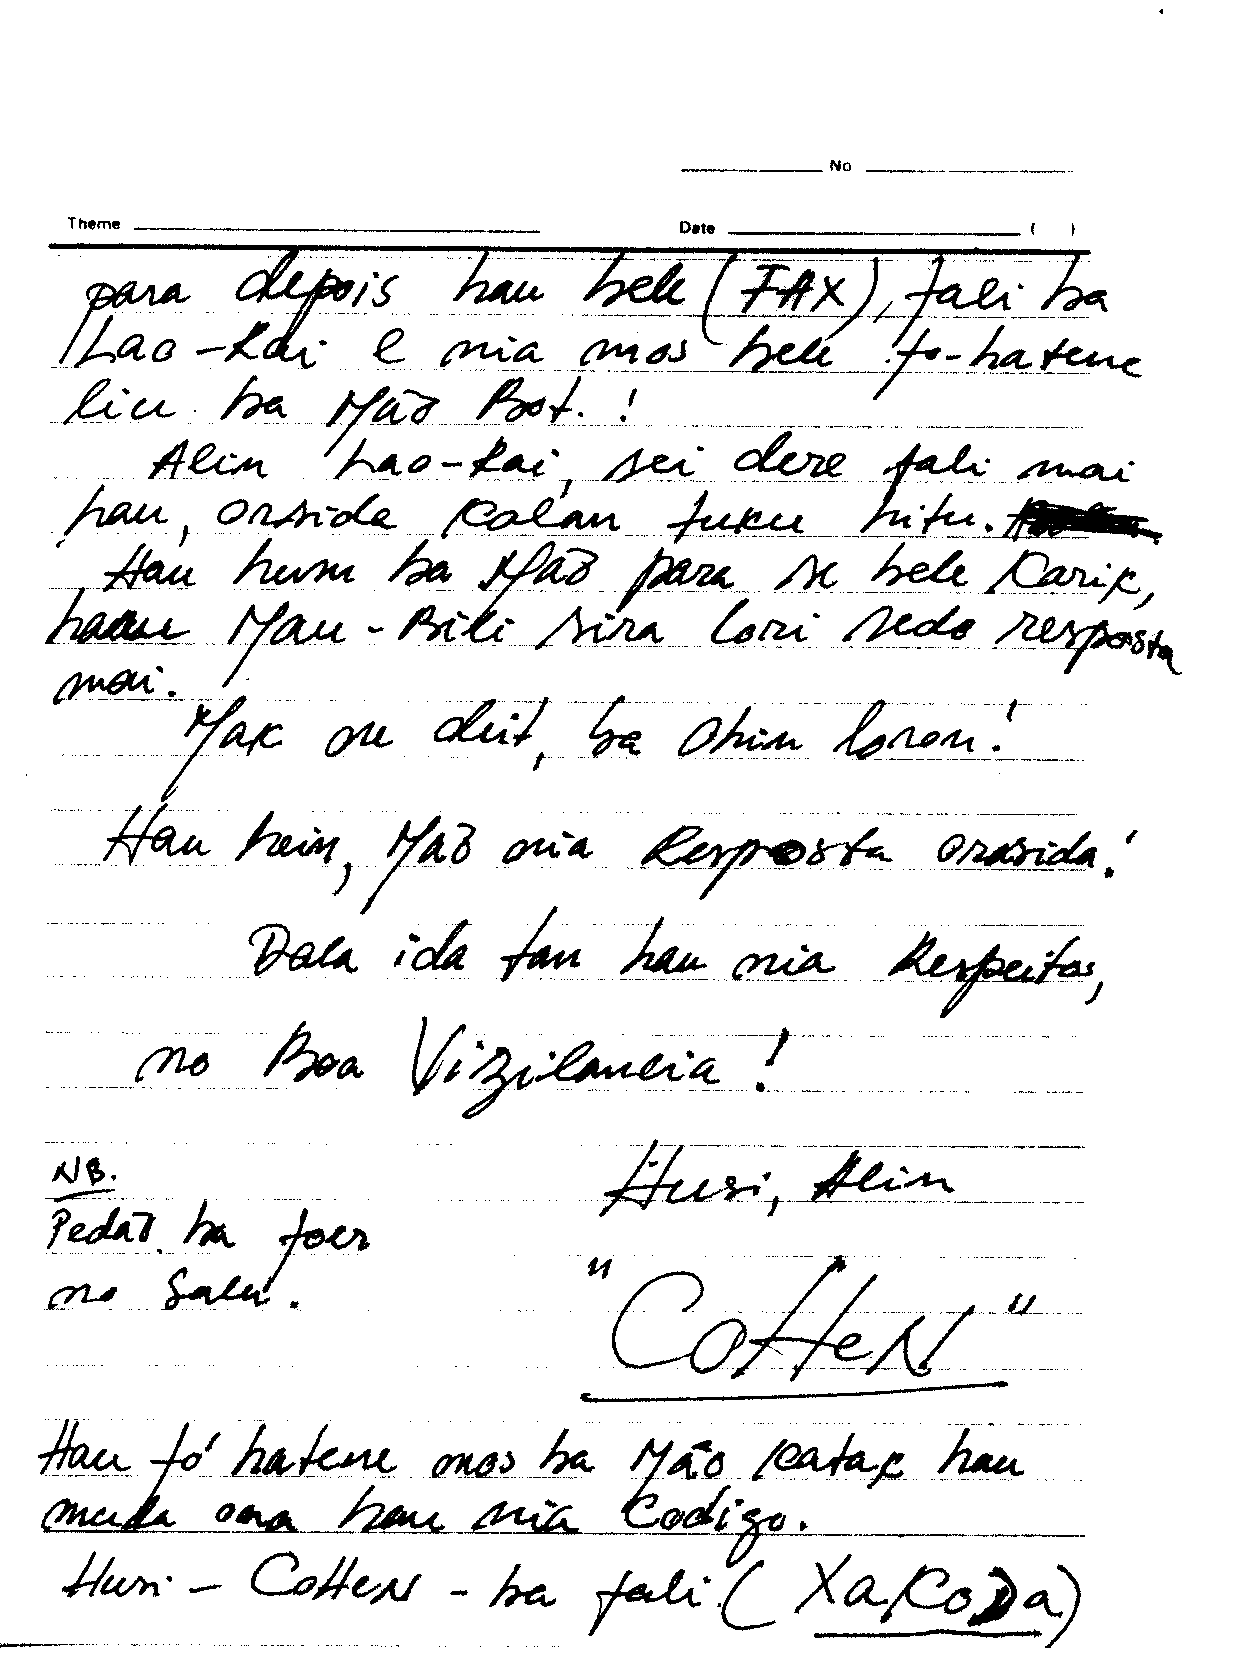 No
Theme Date ( )
para depois hau bele (FAX), fali ba
Lao-Kai e nia mos bele fo-hatene
liu ba Mão Bot.!
Alin Lao-Kai, sei dere fali mai
hau, orsida Kalan tuku hitu.
Hau husu ba Mão para se bele Karik,
haau Mau-Bili sira lori sedo resposta
mai.
Mak ne deit, ba Ohin loron!
Hau hein, Mão nia Resposta orasida!
Dala ida tan hau nia Respeitos,
no Boa Vizilancia!
NB.
Husi, Alin
Pedão ba foer
no Salu.
"CoHeN"
Hau fó hatene mos ba Mão Katak hau
muda ona hau nia Codigo.
Husi - CoHeN - ba fali (XaKoDa)